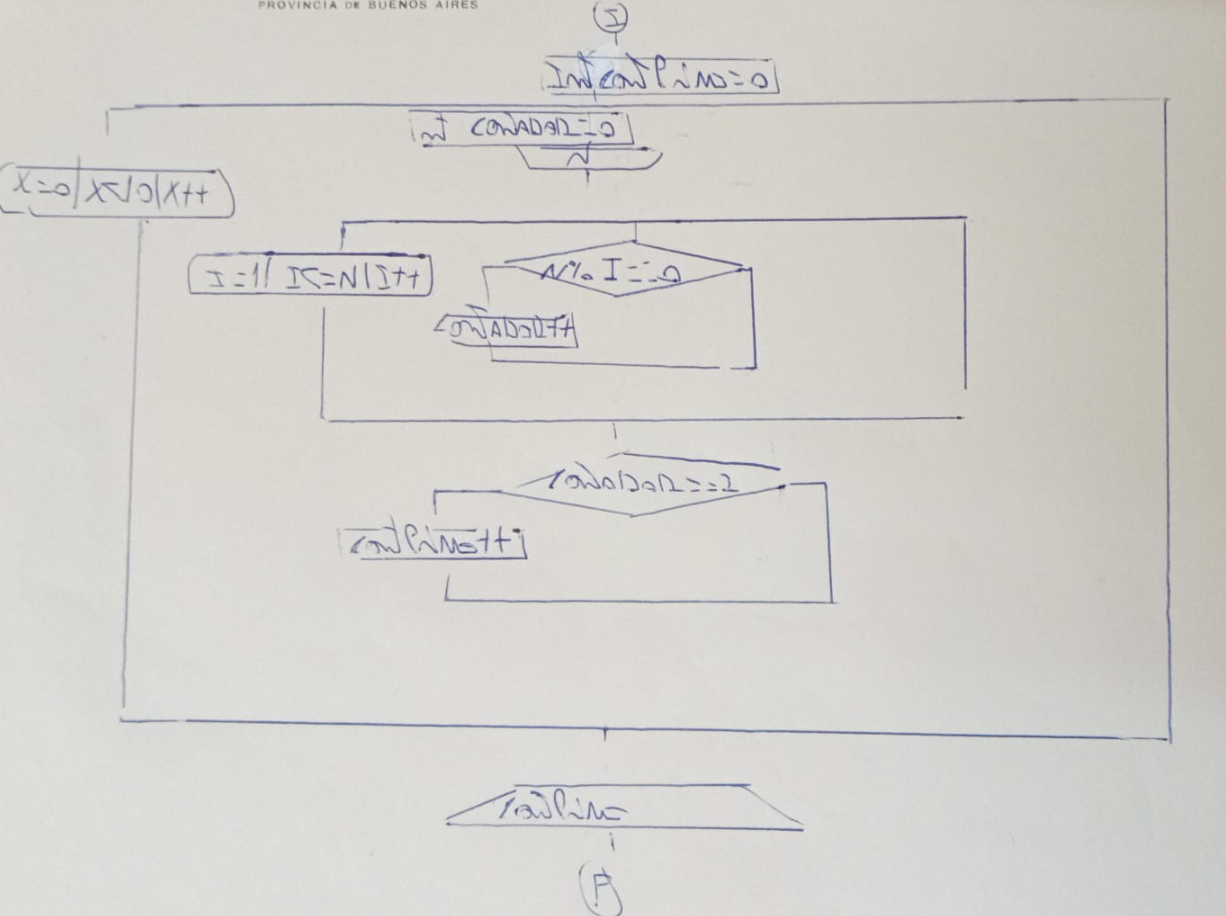 PROVINCIA DE BUENOS AIRES
I
INT CONTPRIMO=0
INT CONTADOR=0
N
X=0|X<10|X++
I=1| I<=N|I++
N% I==0
CONTADOR++
CONTADOR==2
CONTPRIMO++
CONTPRIMO
F